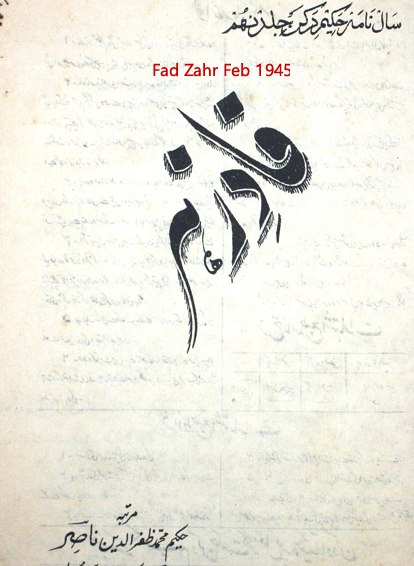 سال نامہ حکیم دکن جلد نہم
Fad Zahr Feb 1945
فادزہر
مرتبہ
حکیم محمد ظفر الدین ناصر